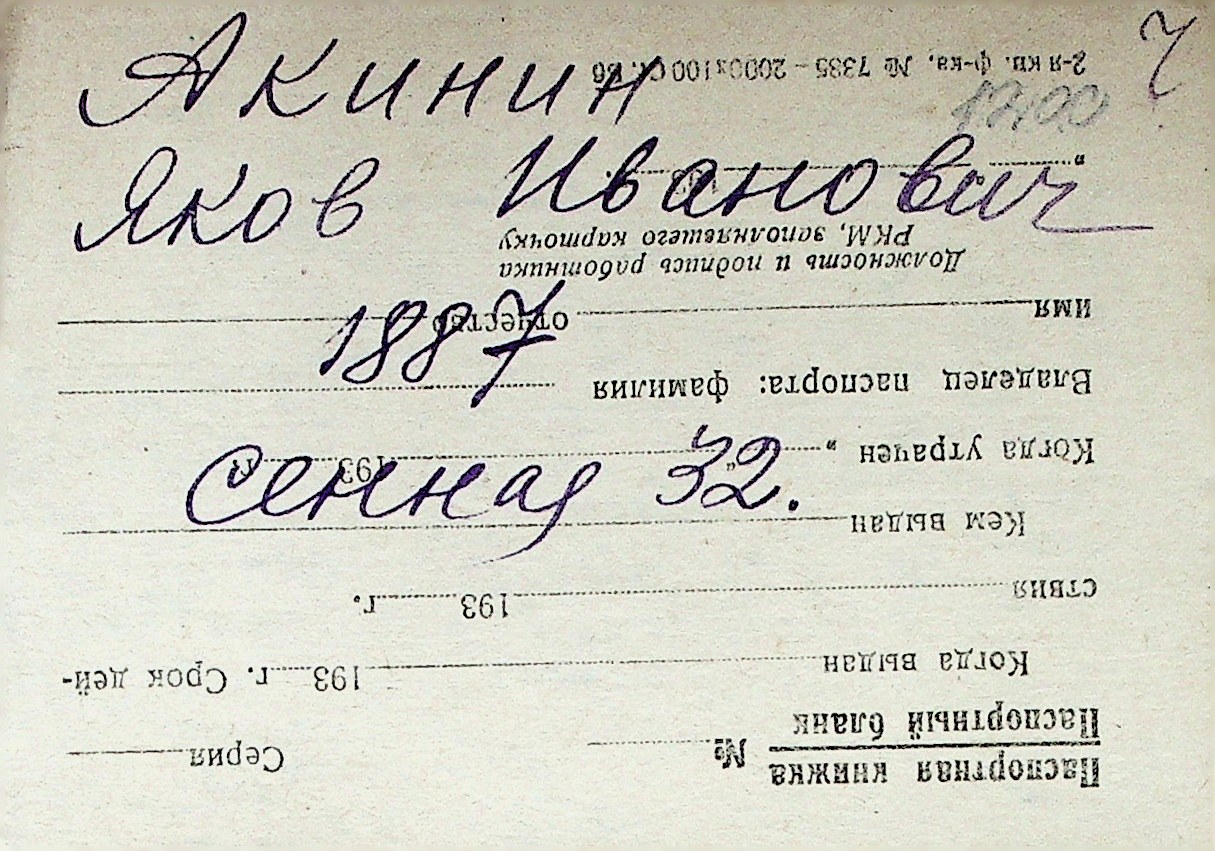 Акинин
Яков Иванович
1887
Сенная 32.
Ч
Паспортная книжка
Паспортный бланк
№ Серия
Когда выдан 193 г. Срок дей-
ствия 193 г.
Кем выдан
Когда утрачен „ “ 193 г.
Владелец паспорта: фамилия
имя отчество
Должность и подпись работника
РКМ, заполнявшего карточку
2-я кв. ф-ка, № 7335 – 2000х100